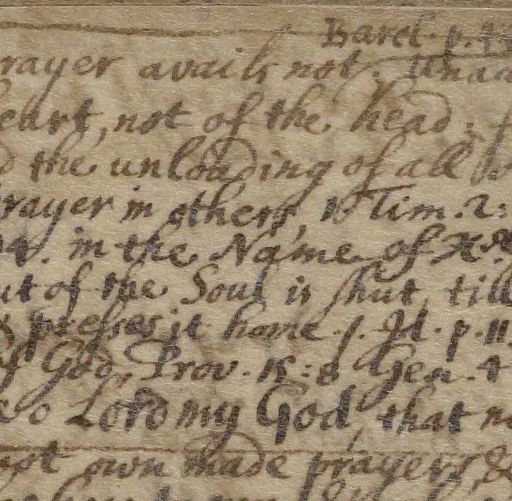 Barcl. p. 43
rayer avails not. Una
eart, not of the head; f
d the unloading of all
rayer in others, 1 Tim. 2:
24. in the Name of X
ut of the Soul is shut, till
presses it home. p. 11
of God, Prov. 15: 8 Gen. 4
o Lord my God, that
not own made prayers, &